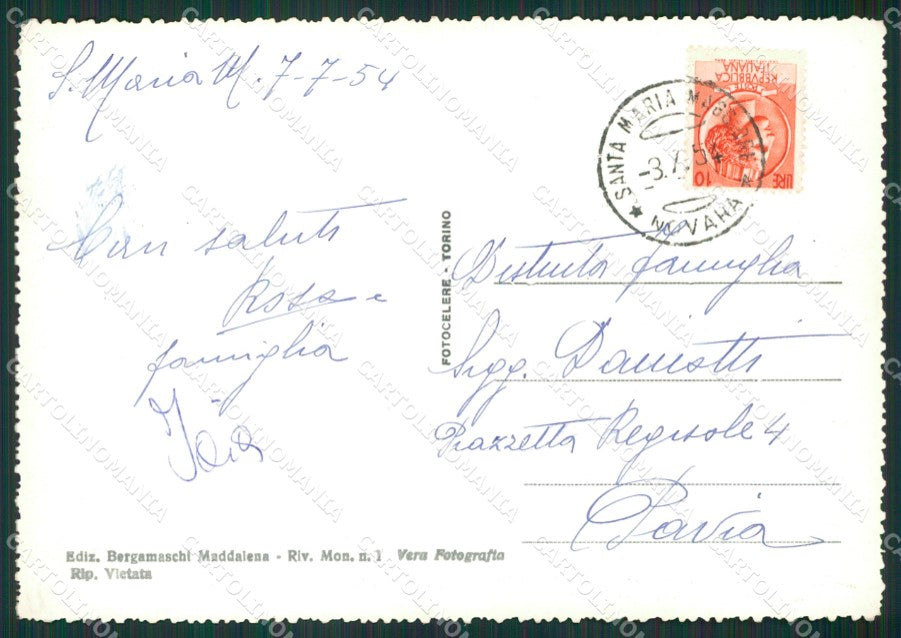 S. Maria M. 7-7-54
Cari saluti
Rosa e
famiglia
FOTOCELERE - TORINO
REPVBBLICA
ITALIANA
LIRE 10
SANTA MARIA MAGGIORE
-3.7.54
★ NOVARA ★
Distinta famiglia
Sigg. Daniotti
Piazzetta Regisole 4
Pavia
Ediz. Bergamaschi Maddalena - Riv. Mon. n. 1 Vera Fotografia
Rip. Vietata
CARTOLINOMANIA